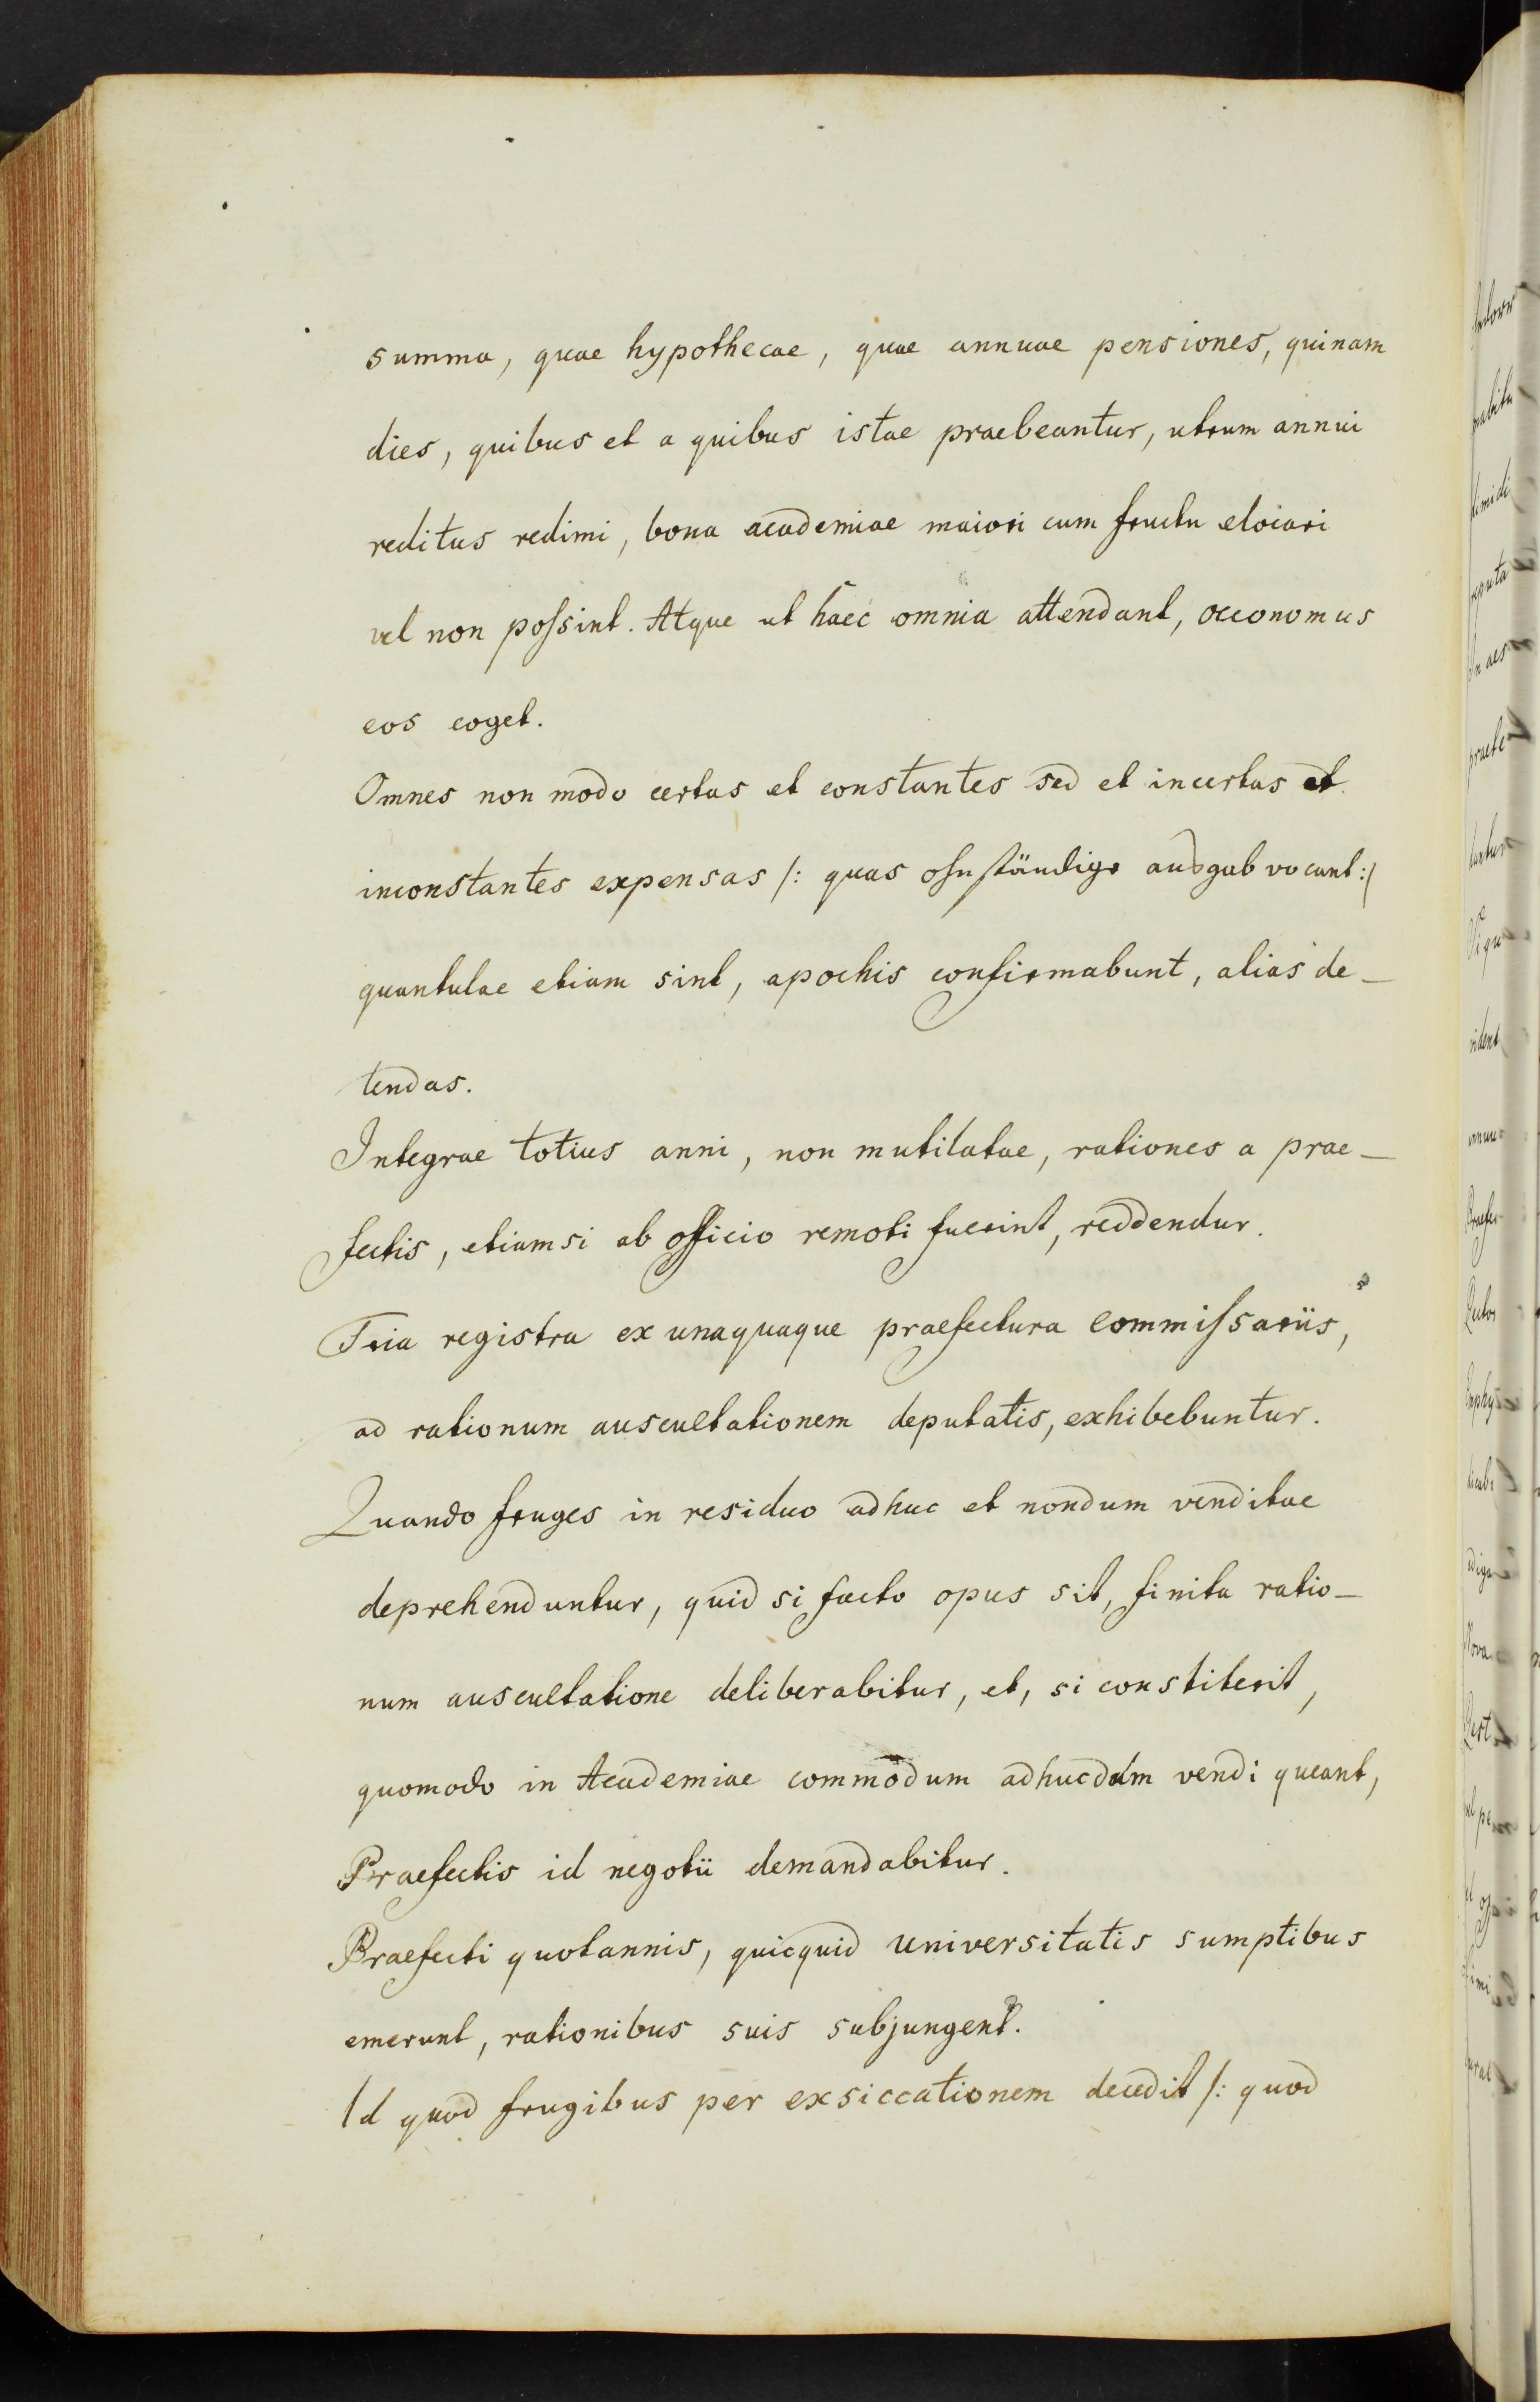 summa, quae hypothecae, quae annuae pensiones, quinam
dies, quibus et a quibus istae praebeantur, utrum annui
reditus redimi, bona academiae maiori cum fructu elocari
vel non poſsint. Atque ut haec omnia attendant, oeconomus
eos coget.
Omnes non modo certas et constantes sed et incertas et
inconstantes expensas /: quas ohnständige ausgab vocant:/
quantulae etiam sint, apochis confirmabunt, alias de-
tendas.
Integrae totius anni, non mutilatae, rationes a prae-
fectis, etiamsi ab officio remoti fuerint, reddendur.
Tria registra ex unaquaque praefectura commiſsariis,
ad rationum auscultationem deputatis, exhibebuntur.
Quando fruges in residuo adhuc et nondum venditae
deprehenduntur, quid si facto opus sit, finita ratio-
num auscultatione deliberabitur, et, si constiterit,
quomodo in Academiae commodum adhucdum vendi queant,
Praefectis id negotii demandabitur.
Praefecti quotannis, quicquid universitatis sumptibus
emerunt, rationibus suis subjungent.
Id quod frugibus per exsiccationem decedit /: quod